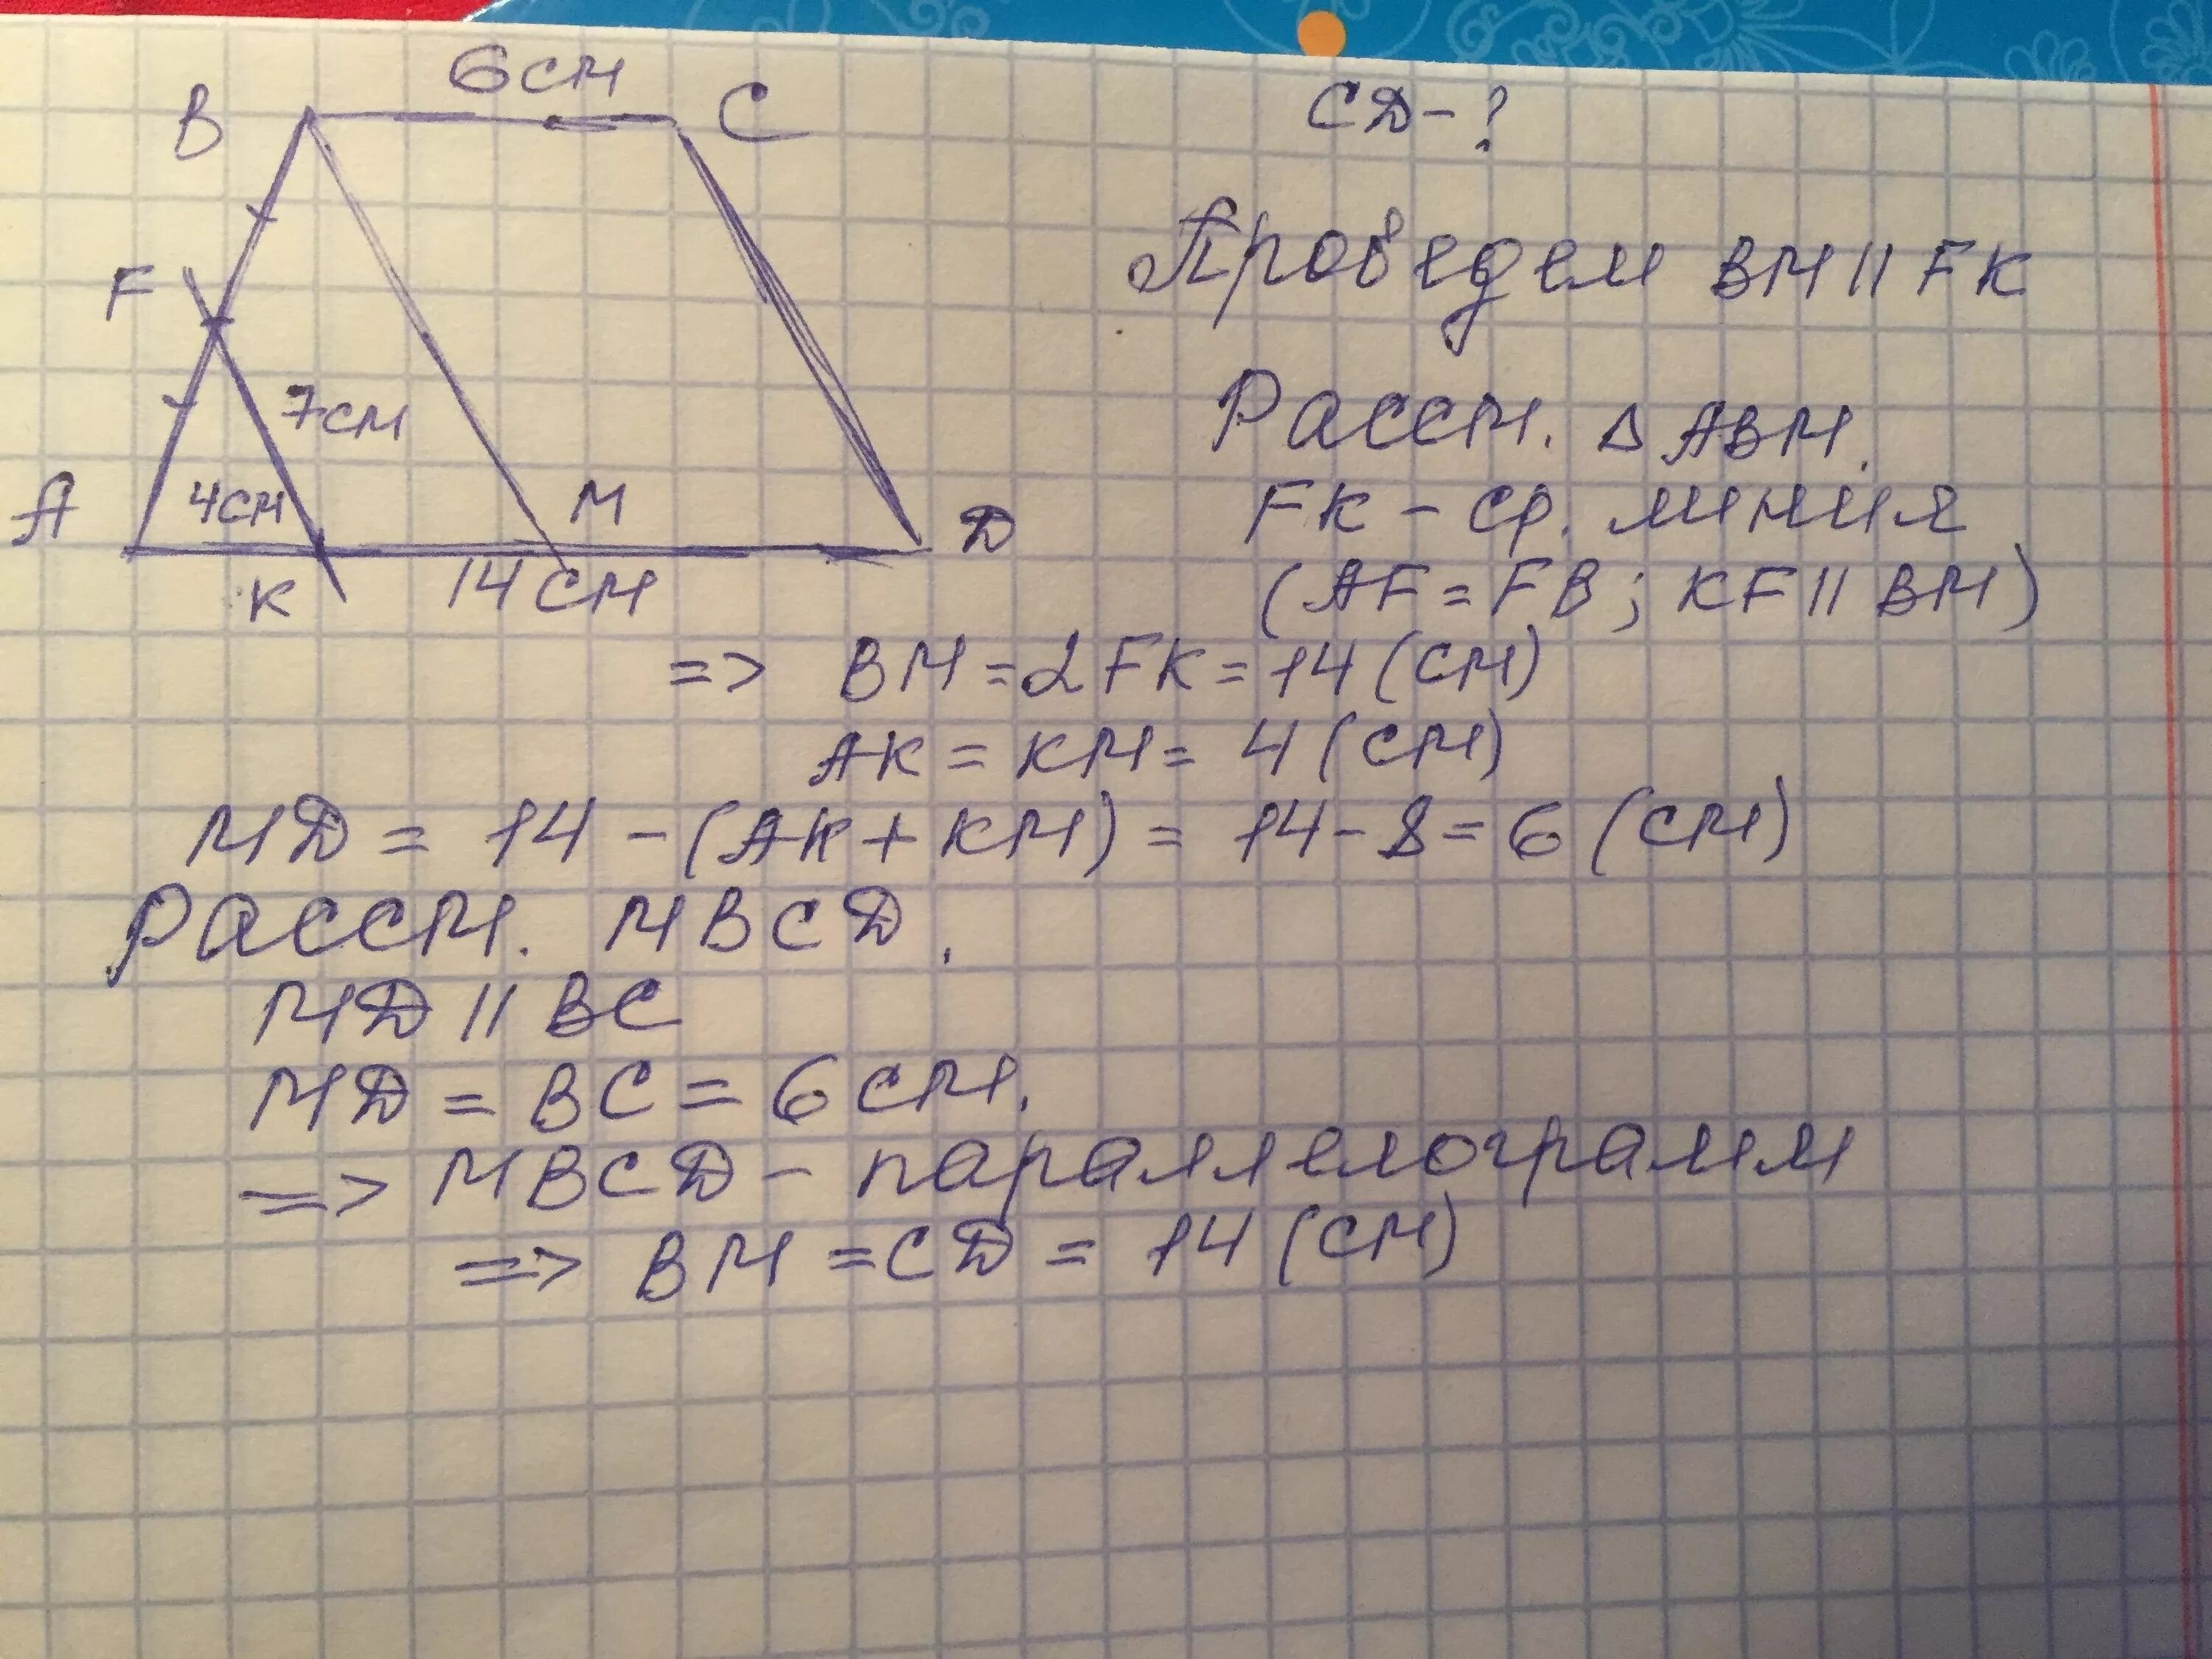 6 см
B
C
СД - ?
F
Проведем BM || FK
7 см
Рассм. △ ABM.
A
4 см
M
Д
FK - ср. линия
K
14 см
(AF = FB; KF || BM)
=> BM = 2FK = 14 (см)
AK = KM = 4 (см)
MД = 14 - (AK + KM) = 14 - 8 = 6 (см)
Рассм. MBCД.
MД || BC
MД = BC = 6 см.
=> MBCД - параллелограмм
=> BM = CД = 14 (см)